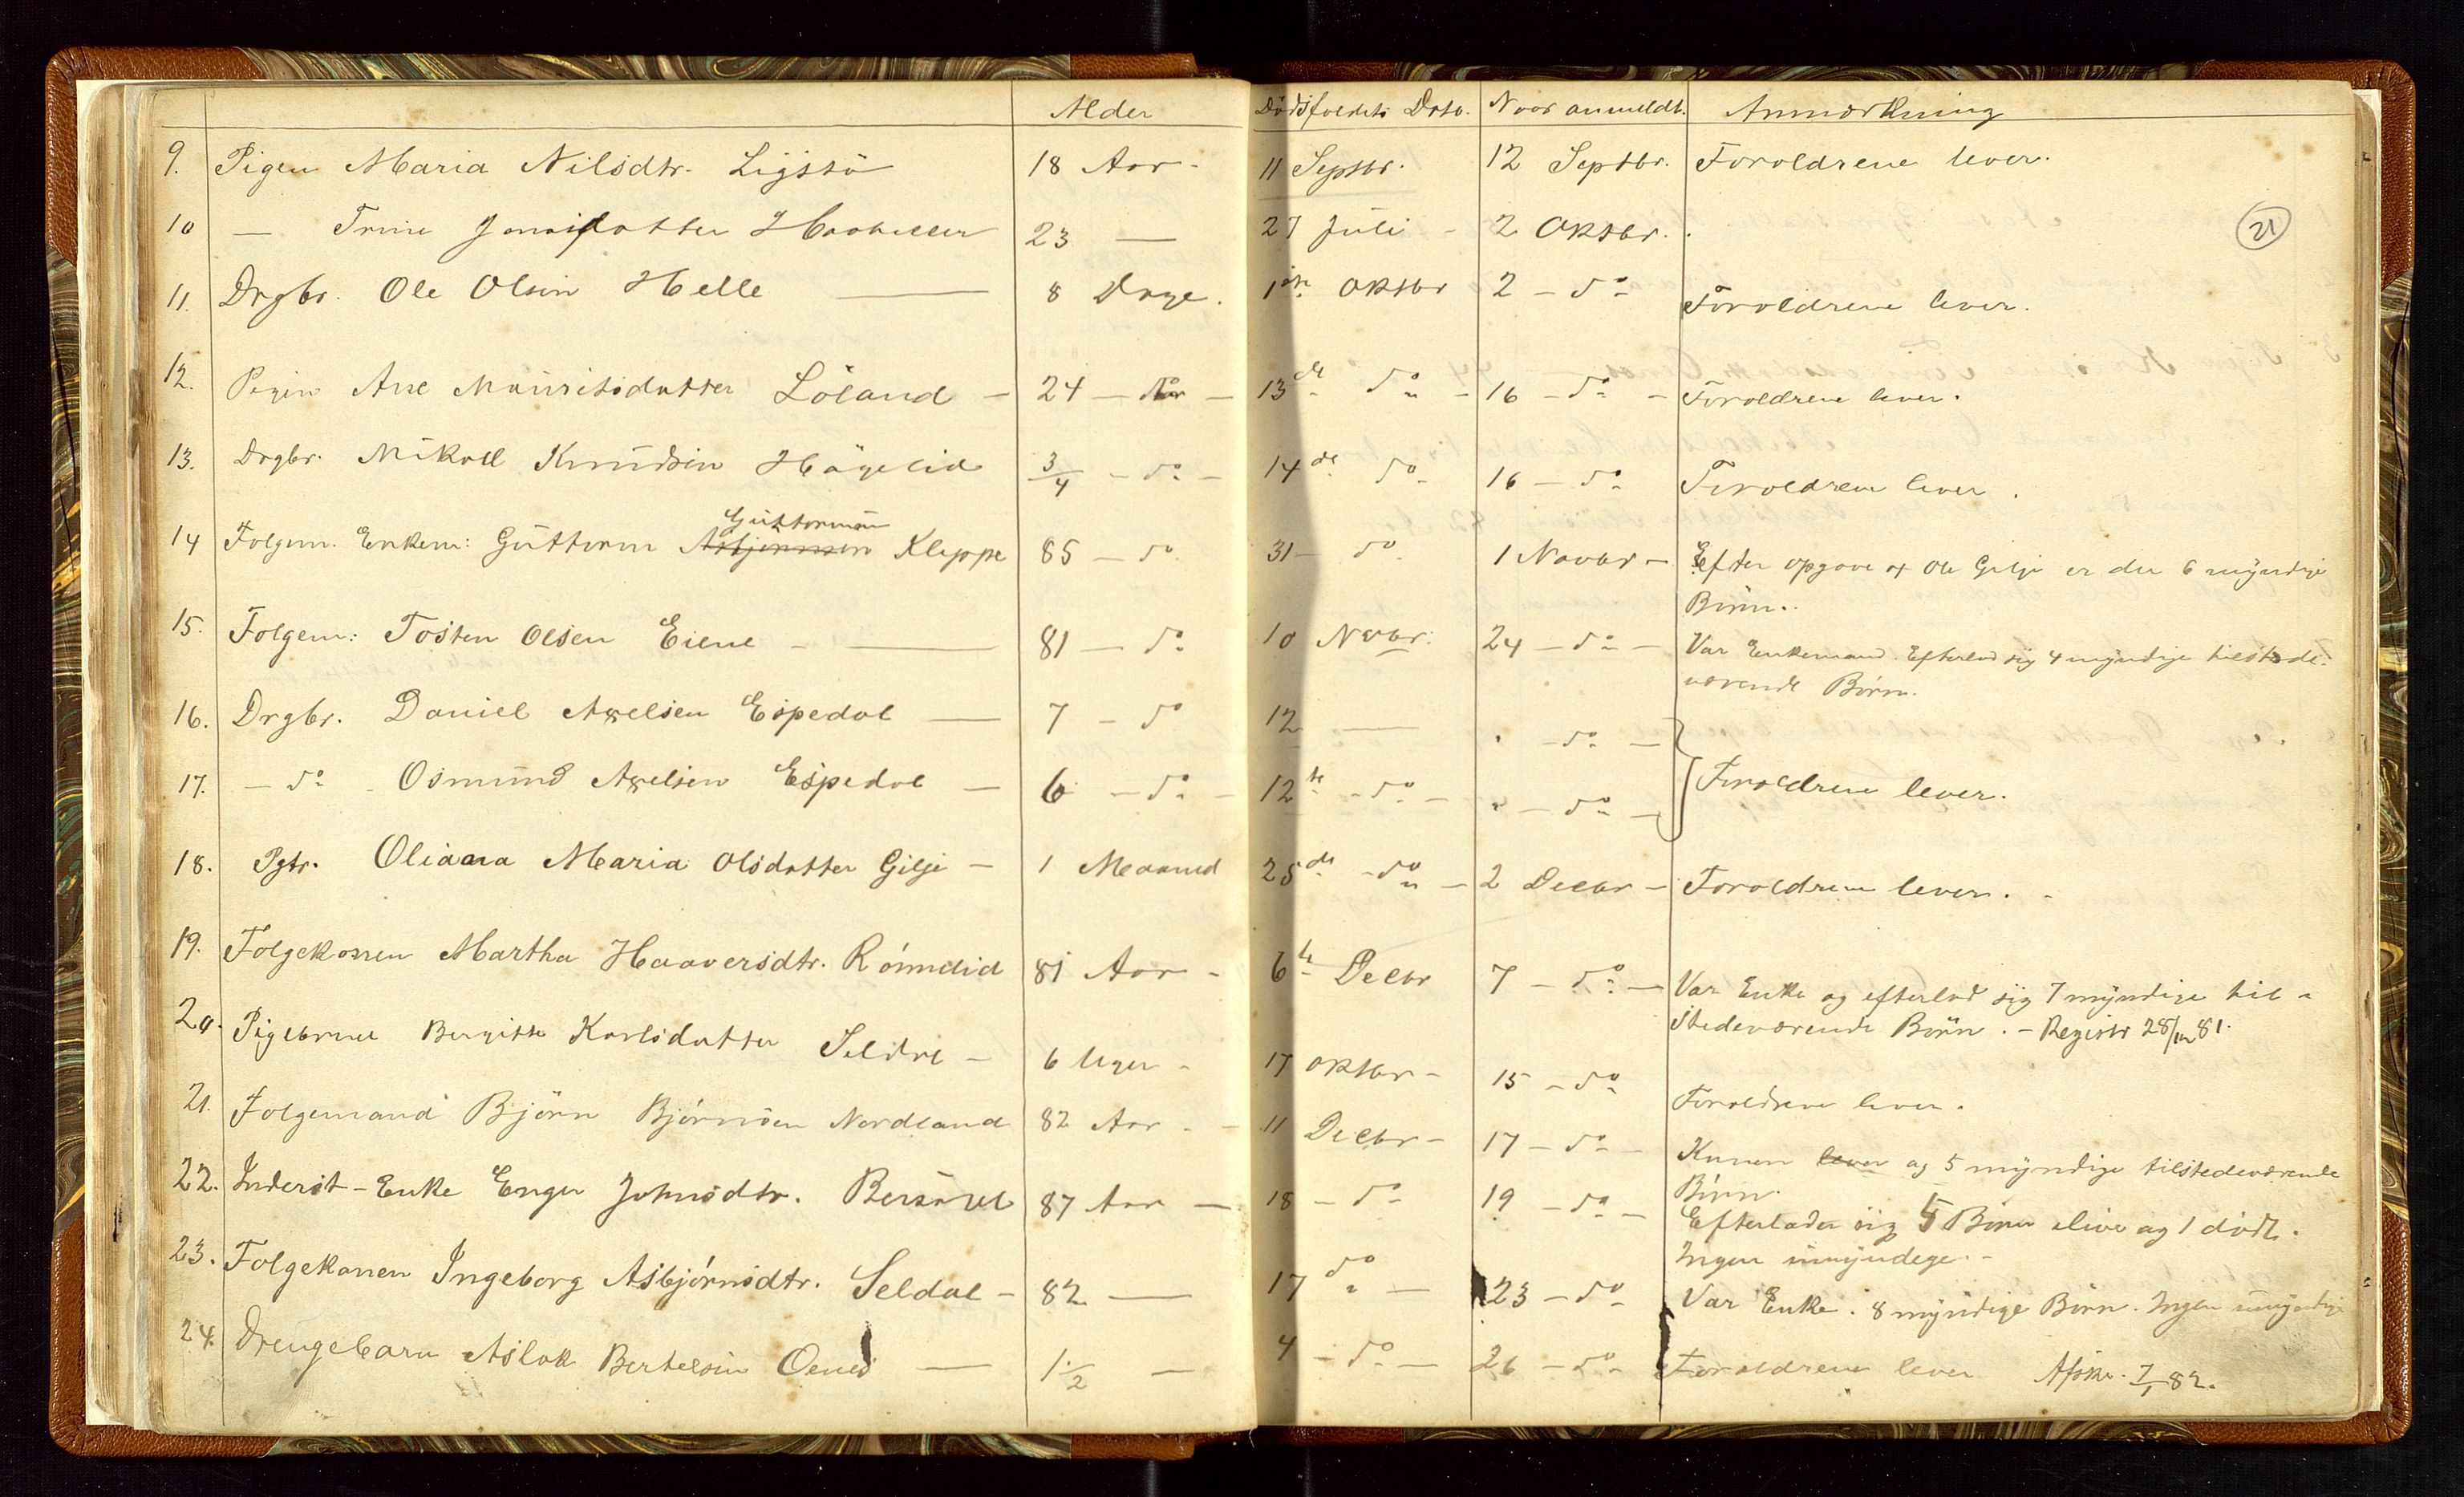 Alder Dødsfaldets Dato. Naar anmeldt. Anmærkning
9. Pigen Maria Nilsdtr. Ligstö 18 Aar - 11 Septbr. 12 Septbr. Foraldrene lever.
21
10 — Trine 23 — 27 Juli - 2 Oktbr.
11. Drgbr. Ole Olsen Helle — 8 Dage. 1ste Oktbr 2 - do Foraldrene lever.
12. Pigen Ane Mauritsdatter Löland - 24 - Aar - 13de do - 16 - do - Foraldrene lever.
13. Drgbr. Mikall Knudsen Högelid 3/4 - do - 14de do 16 - do Foraldrene lever.
Guttormsen
14 Folgem. Enkem: Guttorm Asbjørnsen Kleppe 85 - do 31 - do 1 Novbr - Efter opgave af Ole Gilje er der 6 myndige
Börn.
15. Folgem: Tosten Olsen Eiene — 81 - do 10 Novbr. 24 - do - Var Enkemand. Efterlod sig 4 myndige tilstede-
værende Börn.
16. Drgbr. Daniel Axelsen Espedal — 7 - do 12 — " - do -
17. - do - Osmund Axelsen Espedal — 6 - do - 12te - do - " - do - Foraldrene lever.
18. Pgtr. Oliana Maria Olsdatter Gilje - 1 Maaned 25de - do - 2 Decbr - Foraldrene lever.
19. Folgekonen Martha Haaversdtr. Rönndid 81 Aar - 6te Decbr 7 - do - Var Enke og efterlod sig 7 myndige til-
stedeværende Börn. - Registr 28/12 81.
20. Pigebarnet Bergitte Karlsdatter Seldal - 6 Uger - 17 Oktbr - 15 - do Foraldrene lever.
21. Folgemand Björn Björnsen Nordland 82 Aar - 11 Decbr - 17 - do - Konen lever og 5 myndige tilstedeværende
Börn.
22. Inderst-Enke Enger Johnsdtr. 87 Aar - 18 - do 19 - do - Efterlader sig 5 Börn i live og 1 död.
Ingen umyndege. -
23. Folgekonen Ingeborg Asbjörnsdtr. Seldal - 82 — 17 do - 23 - do Var Enke. 8 myndige Börn. Ingen umyndige
24. Drengebarn Aslak Bertelsen Oenes — 1 1/2 - 4 - do - 26 - do Foraldrene lever Afskr. 7/1 82.